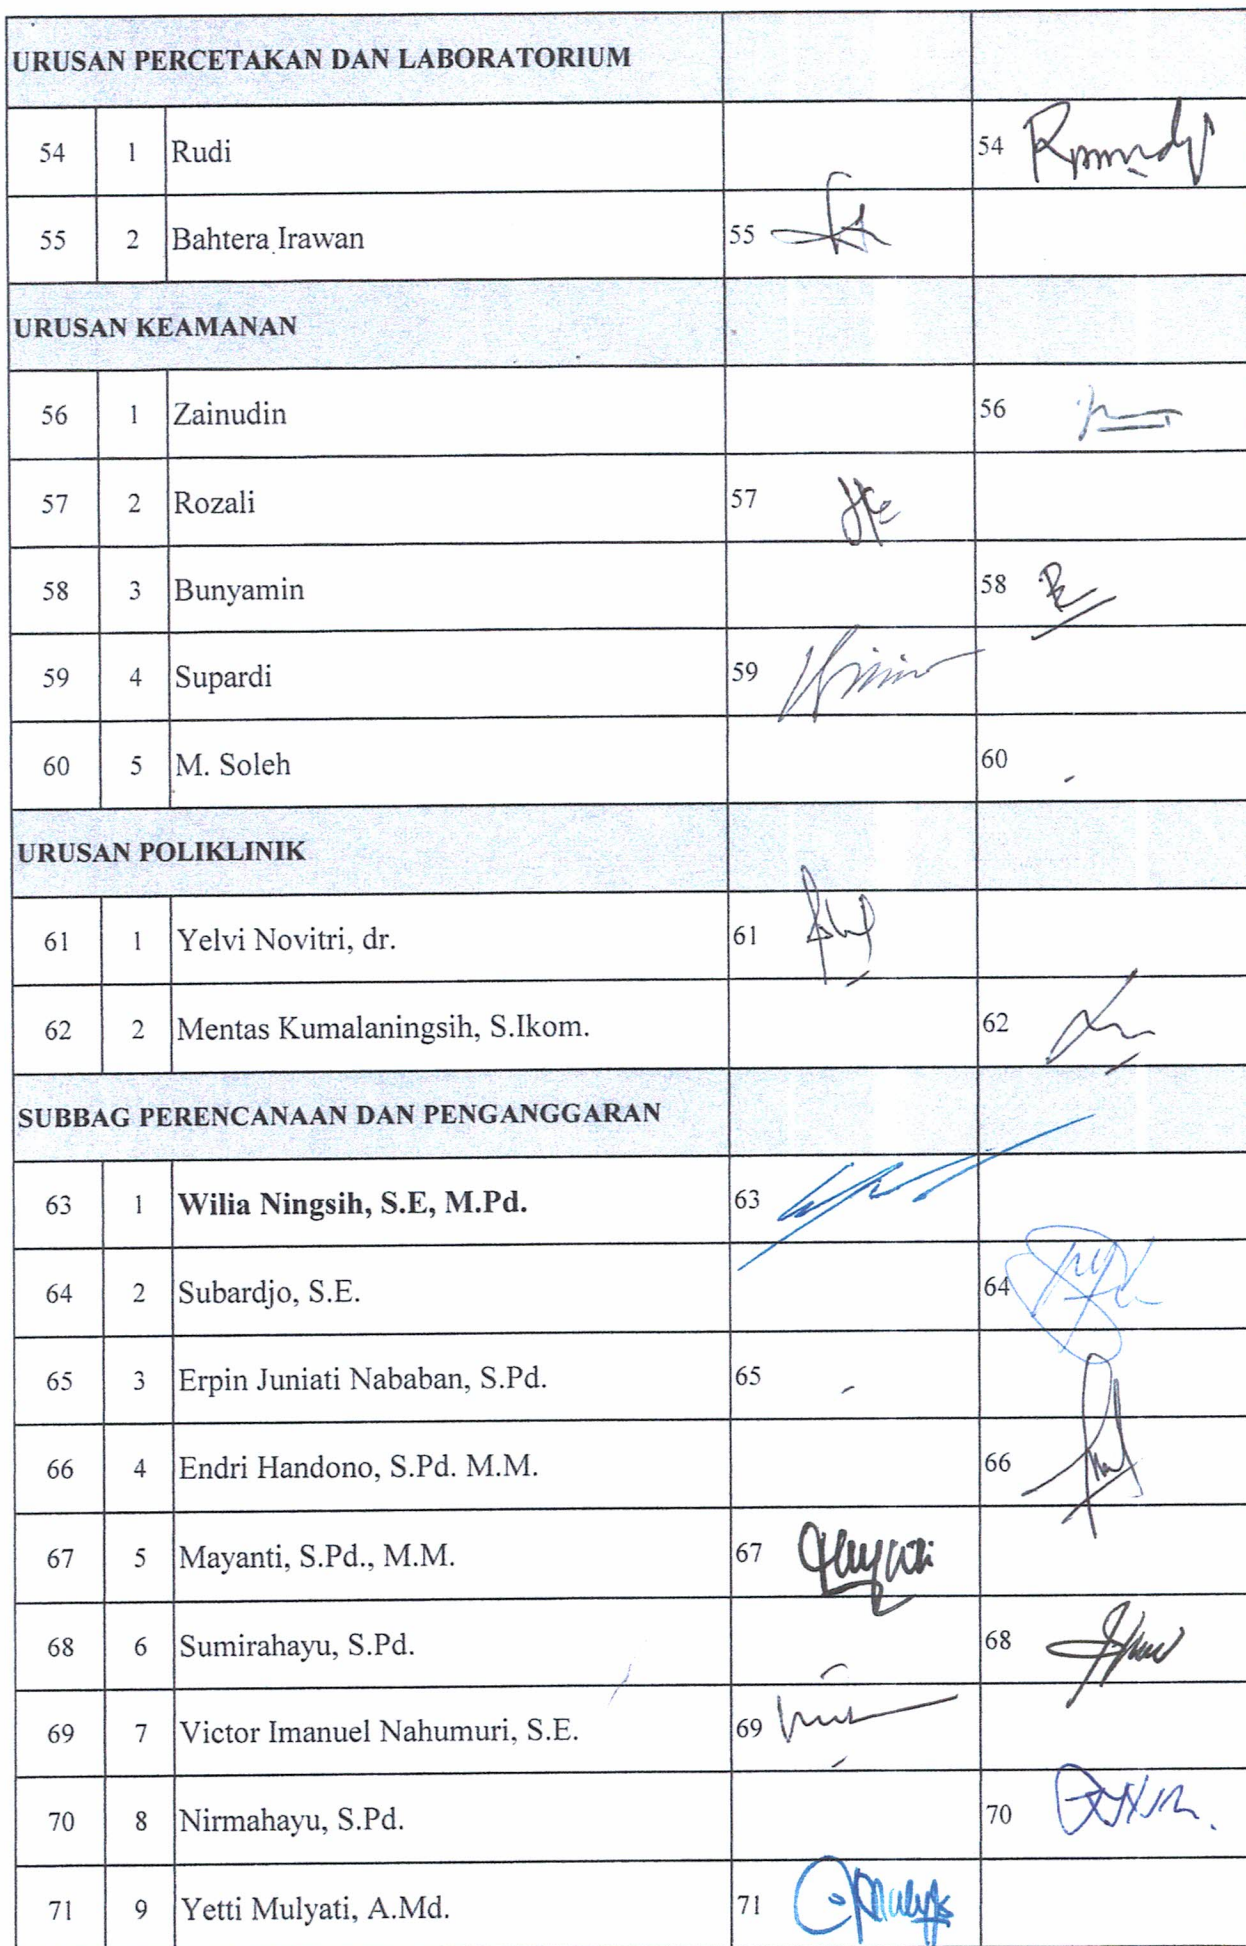 URUSAN PERCETAKAN DAN LABORATORIUM
54 1 Rudi 54
55 2 Bahtera Irawan 55
URUSAN KEAMANAN
56 1 Zainudin 56
57 2 Rozali 57
58 3 Bunyamin 58
59 4 Supardi 59
60 5 M. Soleh 60 -
URUSAN POLIKLINIK
61 1 Yelvi Novitri, dr. 61
62 2 Mentas Kumalaningsih, S.Ikom. 62
SUBBAG PERENCANAAN DAN PENGANGGARAN
63 1 Wilia Ningsih, S.E, M.Pd. 63
64 2 Subardjo, S.E. 64
65 3 Erpin Juniati Nababan, S.Pd. 65 -
66 4 Endri Handono, S.Pd. M.M. 66
67 5 Mayanti, S.Pd., M.M. 67
68 6 Sumirahayu, S.Pd. 68
69 7 Victor Imanuel Nahumuri, S.E. 69
70 8 Nirmahayu, S.Pd. 70
71 9 Yetti Mulyati, A.Md. 71